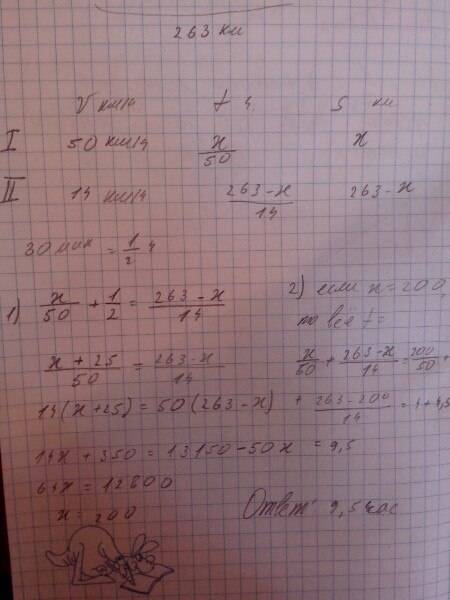 263 км
V км/ч t ч. S км
I 50 км/ч x/50 x
II 14 км/ч (263-x)/14 263-x
30 мин = 1/2 ч
1) x/50 + 1/2 = (263-x)/14
(x+25)/50 = (263-x)/14
14(x+25) = 50(263-x)
14x + 350 = 13150-50x
64x = 12800
x = 200
2) если x=200,
то всё t=
x/50 + (263-x)/14 = 200/50 +
+ (263-200)/14 = 4+4,5
= 9,5
Ответ: 9,5 час